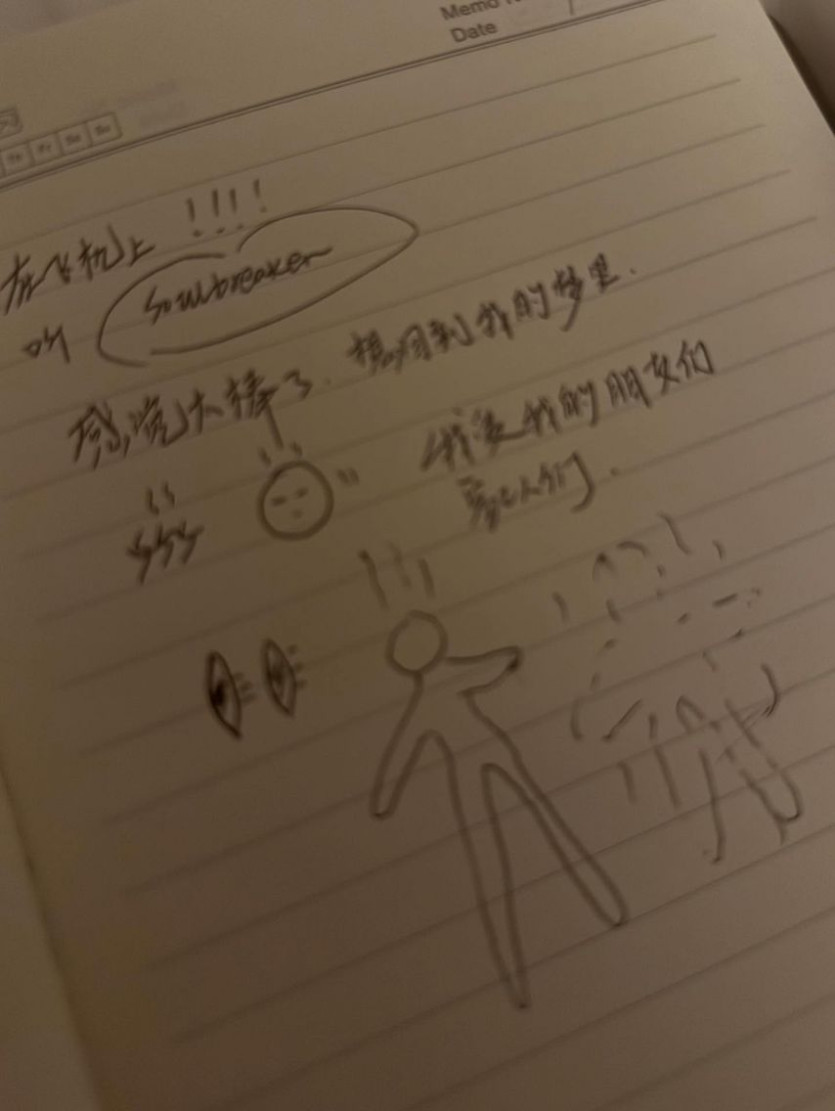 Memo
Date
在飞机上 !!!!
听 Soulbreaker
感觉太棒了.
到我的梦里.
我爱我的朋友们
爱人们.